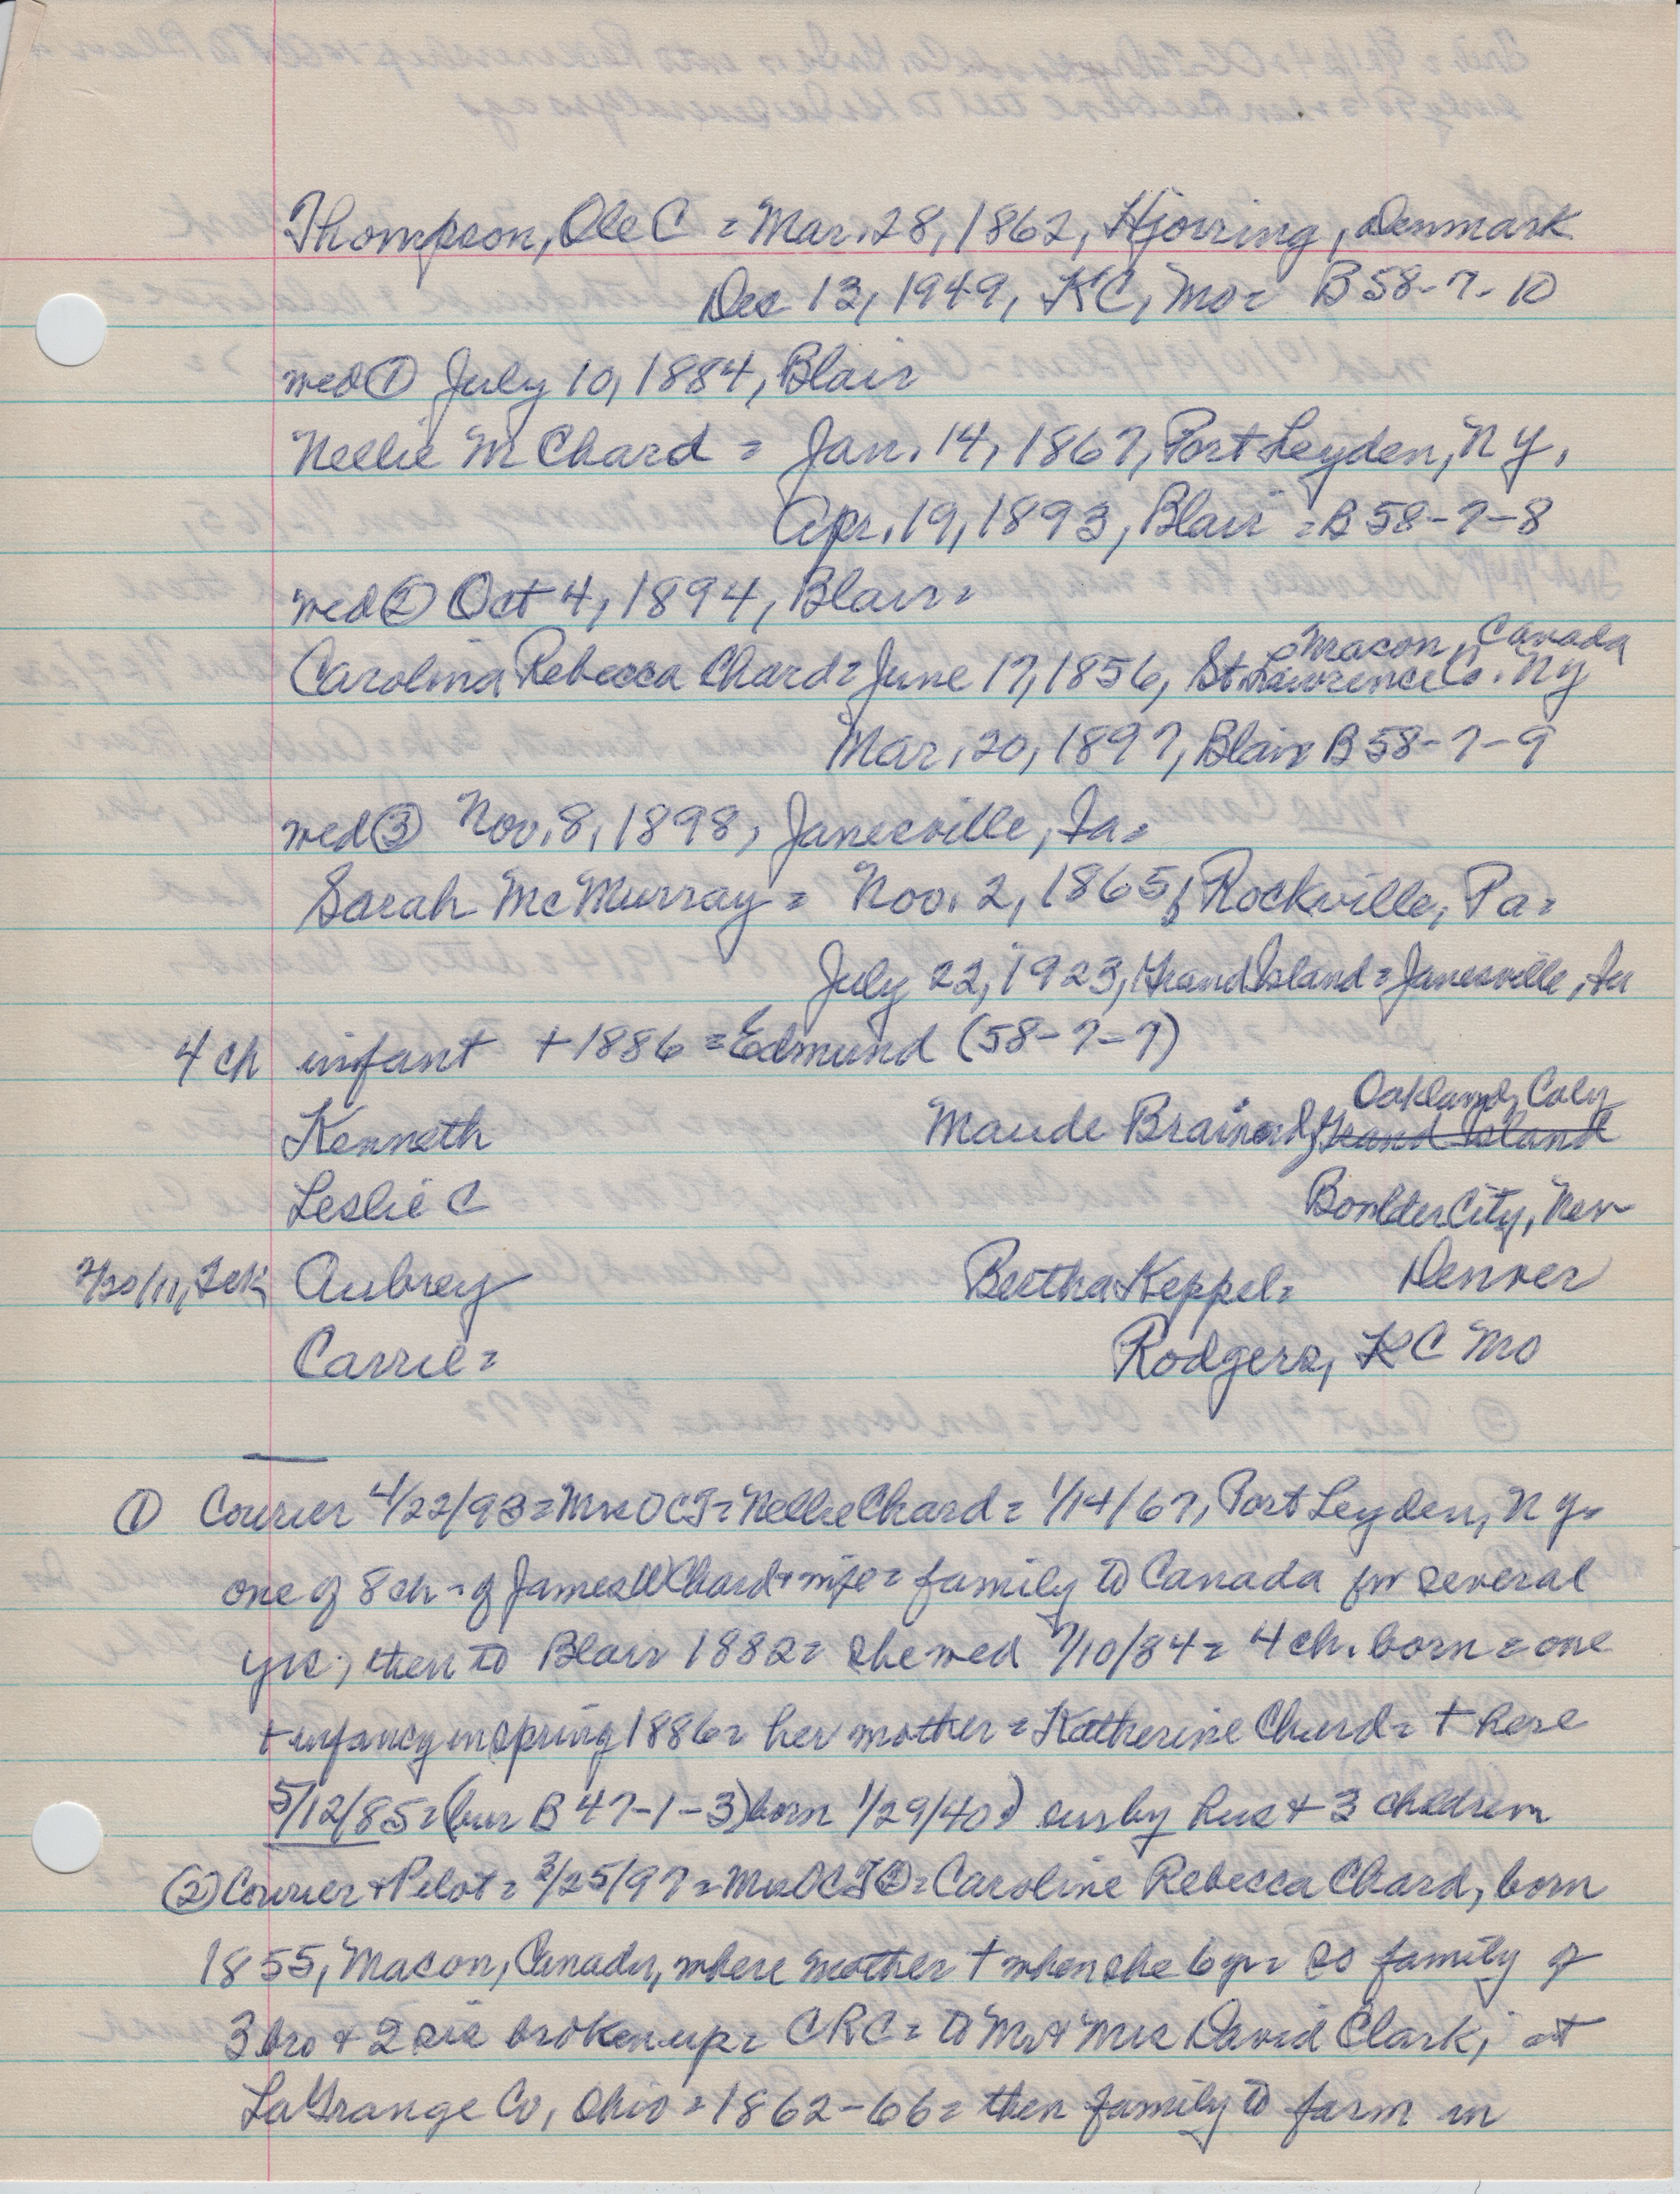 Thompson, Ole C = Mar. 28, 1862, Hjorring, Denmark
Dec 13, 1949, KC, Mo = B 58-7-10
wed ① July 10, 1884, Blair
Nellie M Chard = Jan. 14, 1867, Port Leyden, N Y.
Apr. 19, 1893, Blair = B 58-7-8
wed ② Oct 4, 1894, Blair =
Macon, Canada
Carolina Rebecca Chard = June 17, 1856, St Lawrence Co. NY
Mar. 20, 1897, Blair B 58-7-9
wed ③ Nov. 8, 1898, Janesville, Ia =
Sarah McMurray = Nov. 2, 1865, Rockville, Pa =
July 22, 1923, Grand Island = Janesville, Ia
4 ch infant + 1886 = Edmund (58-7-7)
Oakland, Caly
Kenneth Maude Brainerd, Grand Island
Leslie C Boulder City, Nev
2/20/11, Tek Aubrey Bertha Keppel = Denver
Carrie = Rodgers, KC Mo
① Courier 4/22/93 = Mrs OCT = Nellie Chard = 1/14/67, Port Leyden, N Y =
one of 8 ch - of James W Chard + wife = family to Canada for several
yrs; then to Blair 1882 = she wed 7/10/84 = 4 ch. born = one
+ infancy in spring 1886 = her mother = Katherine Chard = + here
5/12/85 = (bur B 47-1-3) born 1/29/40) sur by hus + 3 children
(2) Courier + Pilot = 3/25/97 = Mrs OCT ② = Caroline Rebecca Chard, born
1855, Macon, Canada, where mother + when she 6 yr = so family of
3 bro + 2 sis broken up = CRC = to Mr + Mrs David Clark, at
LaGrange Co, Ohio = 1862-66 = then family to farm in